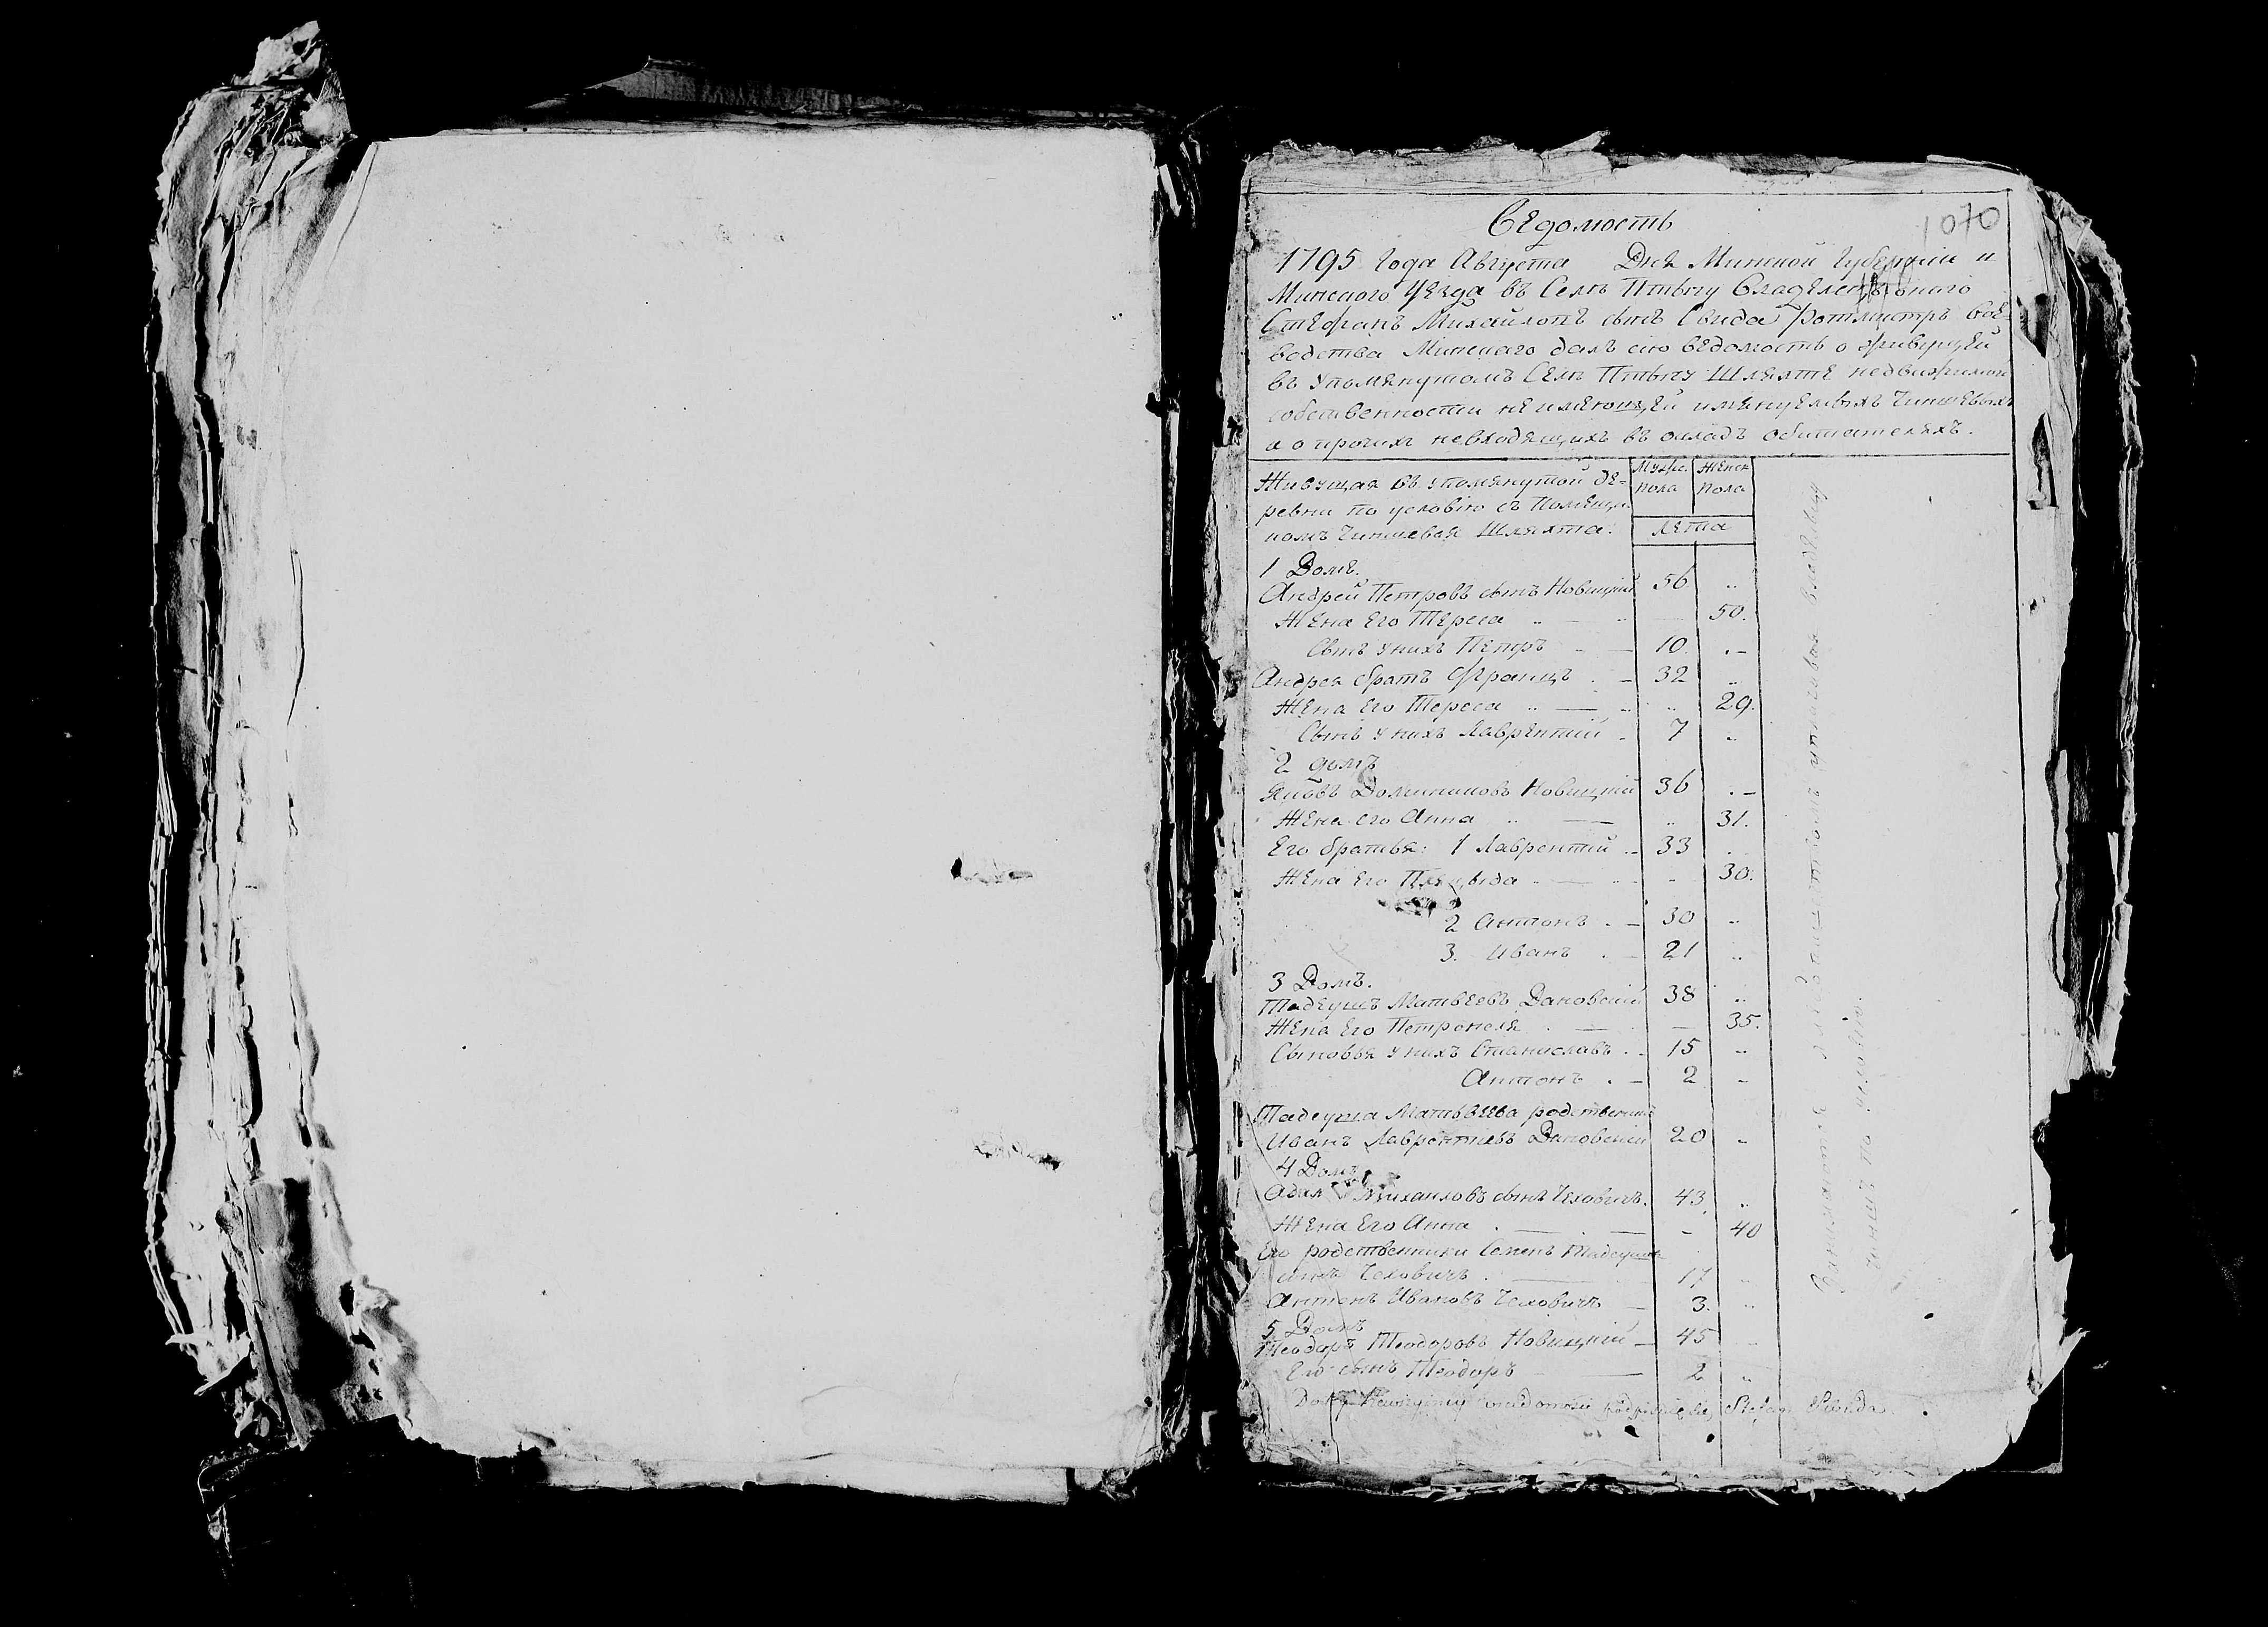 1070
Ведомость
1795 Года Августа Дня Минской Губернии и
Минского Уезда въ Селѣ Птычу Владелецъ оного
Стефанъ Михайловъ сынъ Свида Ротмистръ Вое-
водства Минского далъ сию ведомость о живущей
въ упомянутомъ Селѣ Птычу Шляхте недвижимои
собственности не имеющей имянуемыхъ Чиншевыхъ
а о прочихъ невходящихъ въ окладъ обитателяхъ.
Живущая въ упомянутой де-
ревни по условию съ Помещи
комъ Чиншевая Шляхта.
Мужс. Женск
пола пола
лета
1 Домъ.
Андрей Петровъ сынъ Новицкий 56 ..
Жена Его Тереса .. — .. — 50.
Сынъ у нихъ Петръ — — 10. .-
Андрея братъ Францъ . - 32 ..
Жена его Тереса .. — .. .. 29.
Сынъ у нихъ Лаврентий . 7 ..
2 домъ
Яковъ Доминиковъ Новицкий 36 .-
Жена его Анна .. — .. 31.
Его братья: 1 Лаврентий .- 33 ..
Жена Его .. — .. - 30.
2 Антонъ . - 30 ..
3. Иванъ . - 21 ..
3 Домъ.
Тадеушъ Матвеевъ Дановский 38 ..
Жена Его Петронеля . — — 35.
Сыновья у нихъ Станиславъ . - 15 ..
Антонъ . - 2 ..
Тадеуша Матвеева родственникъ
Иванъ Лаврентиевъ Дановский 20 ..
4 Домъ
Адам Михаиловъ сынъ Чеховичъ. 43. ..
Жена Его Анна . — . — - 40
Его родственники Семенъ Тадеуша
сынъ Чеховичъ . — 17 ..
Антонъ Ивановъ Чеховичъ — 3. ..
5 Домъ
Теодоръ Теодоровъ Новицкий — 45 ..
Его сынъ Теодоръ — 2 ..
Stefan Swida.
чиншъ по условию.